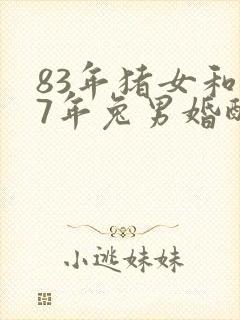 83年猪女和
7年兔男婚
小逃妹妹